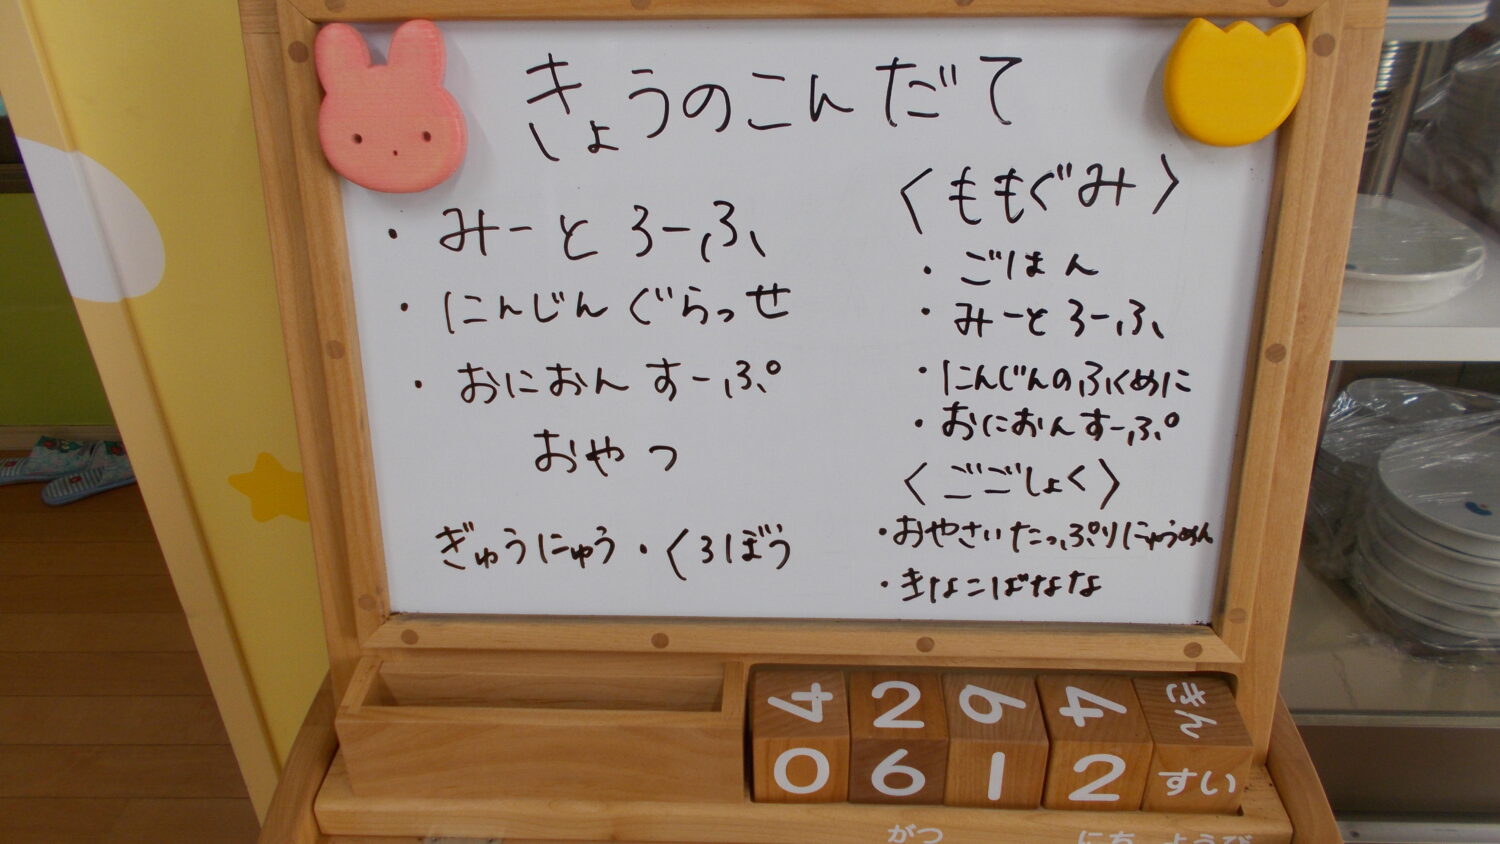 きょうのこんだて
・みーとろーふ
・にんじんぐらっせ
・おにおんすーぷ
おやつ
ぎゅうにゅう・くろぼう
〈ももぐみ〉
・ごはん
・みーとろーふ
・にんじんのふくめに
・おにおんすーぷ
〈ごごしょく〉
・おやさいたっぷりにゅうめん
・きなこばなな
4 2 9 4 きん
0 6 1 2 すい
がつ にち ようび